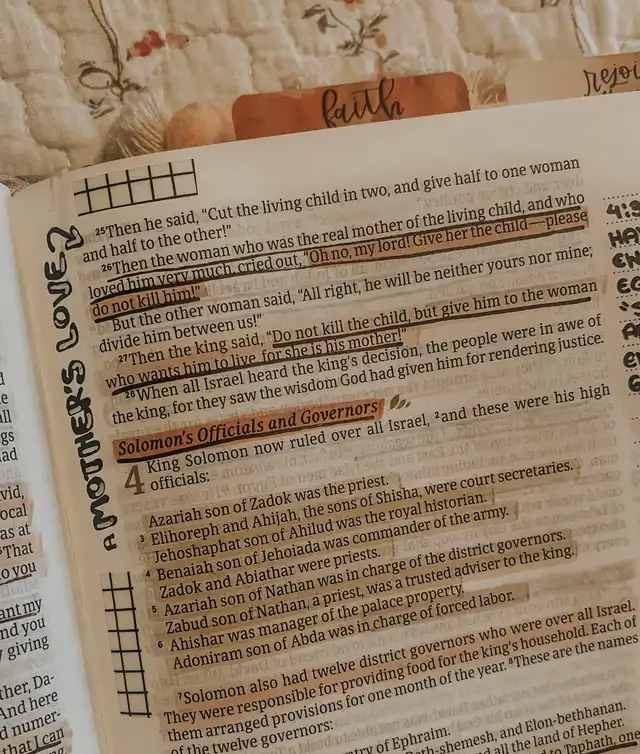 faith
rejoi
A MOTHER'S LOVE
25Then he said, "Cut the living child in two, and give half to one woman
and half to the other!"
26Then the woman who was the real mother of the living child, and who
loved him very much, cried out, "Oh no, my lord! Give her the child—please
do not kill him!"
But the other woman said, "All right, he will be neither yours nor mine;
divide him between us!"
27Then the king said, "Do not kill the child, but give him to the woman
who wants him to live, for she is his mother!"
28When all Israel heard the king's decision, the people were in awe of
the king, for they saw the wisdom God had given him for rendering justice.
Solomon's Officials and Governors
4 King Solomon now ruled over all Israel, 2and these were his high
officials:
Azariah son of Zadok was the priest.
3 Elihoreph and Ahijah, the sons of Shisha, were court secretaries.
Jehoshaphat son of Ahilud was the royal historian.
4 Benaiah son of Jehoiada was commander of the army.
Zadok and Abiathar were priests.
5 Azariah son of Nathan was in charge of the district governors.
Zabud son of Nathan, a priest, was a trusted adviser to the king.
6 Ahishar was manager of the palace property.
Adoniram son of Abda was in charge of forced labor.
7Solomon also had twelve district governors who were over all Israel.
They were responsible for providing food for the king's household. Each of
them arranged provisions for one month of the year. 8These are the names
of the twelve governors:
ntry of Ephraim.
Beth-shemesh, and Elon-bethhanan.
d all the land of Hepher.
4:
HA
EN
vid,
ocal
as at
That
o you
ant my
nd you
y giving
ther, Da-
And here
d numer-
that I can